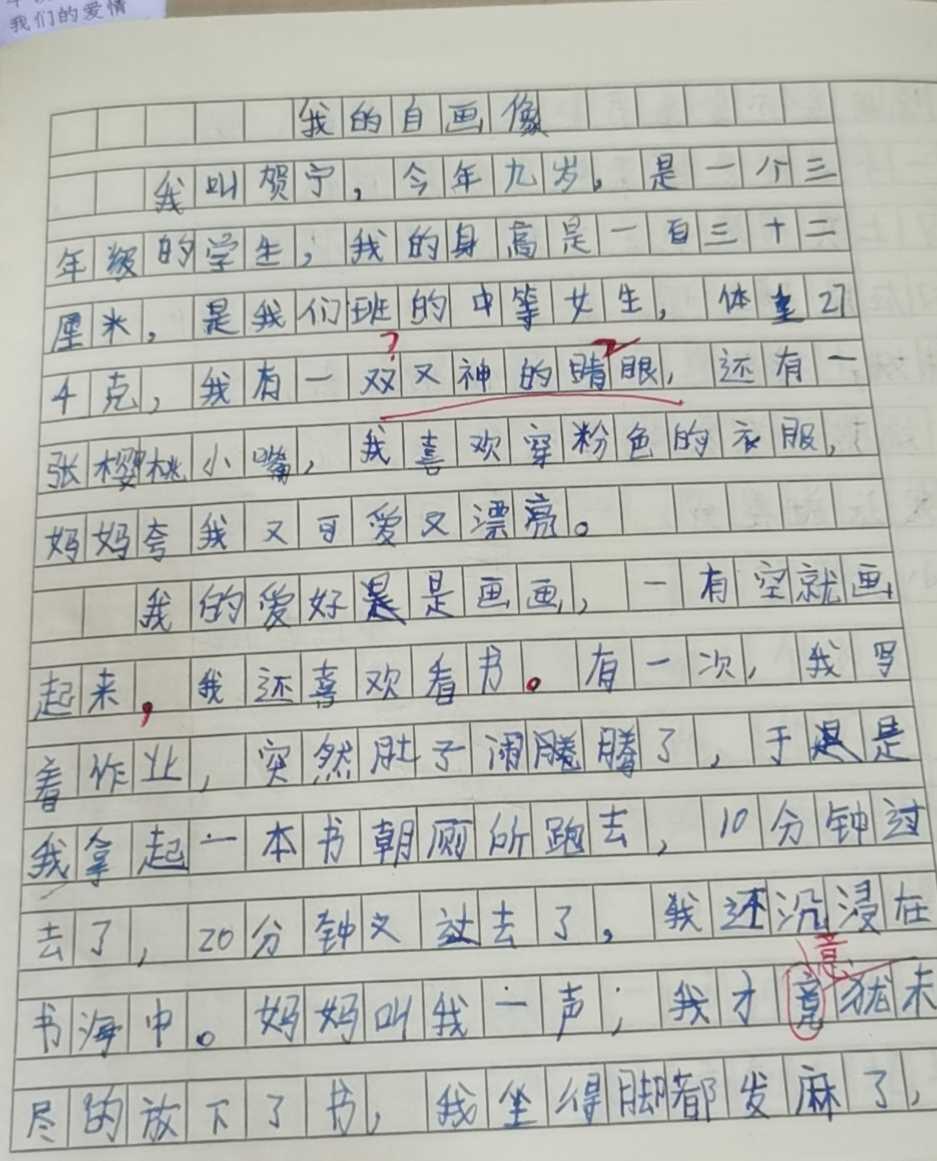 我们的爱情
我的自画像
我叫贺宁，今年九岁，是一个三
年级的学生，我的身高是一百三十二
厘米，是我们班的中等女生，体重27
千克，我有一双又神的睛眼，还有一
张樱桃小嘴，我喜欢穿粉色的衣服，
妈妈夸我又可爱又漂亮。
我的爱好是是画画，一有空就画
起来，我还喜欢看书。有一次，我写
着作业，突然肚子闹腾腾了，于是是
我拿起一本书朝厕所跑去，10分钟过
去了，20分钟又过去了，我还沉浸在
意
书海中。妈妈叫我一声；我才竟犹未
尽的放下了书，我坐得脚都发麻了，